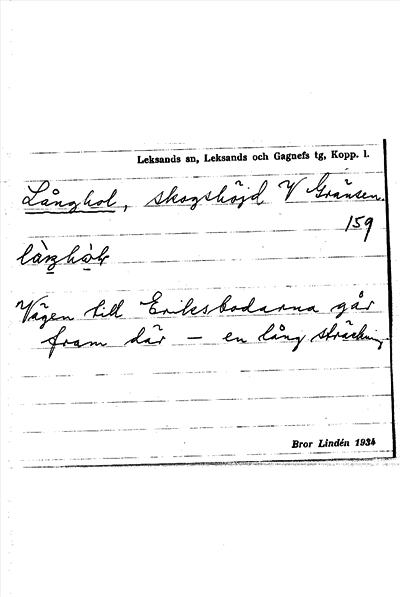 Leksands sn, Leksands och Gagnefs tg, Kopp. l.
Långhol, skogshöjd V Gränsen.
159
Vägen till Eriksbodarna går
fram där – en lång sträckning.
Bror Lindén 1934